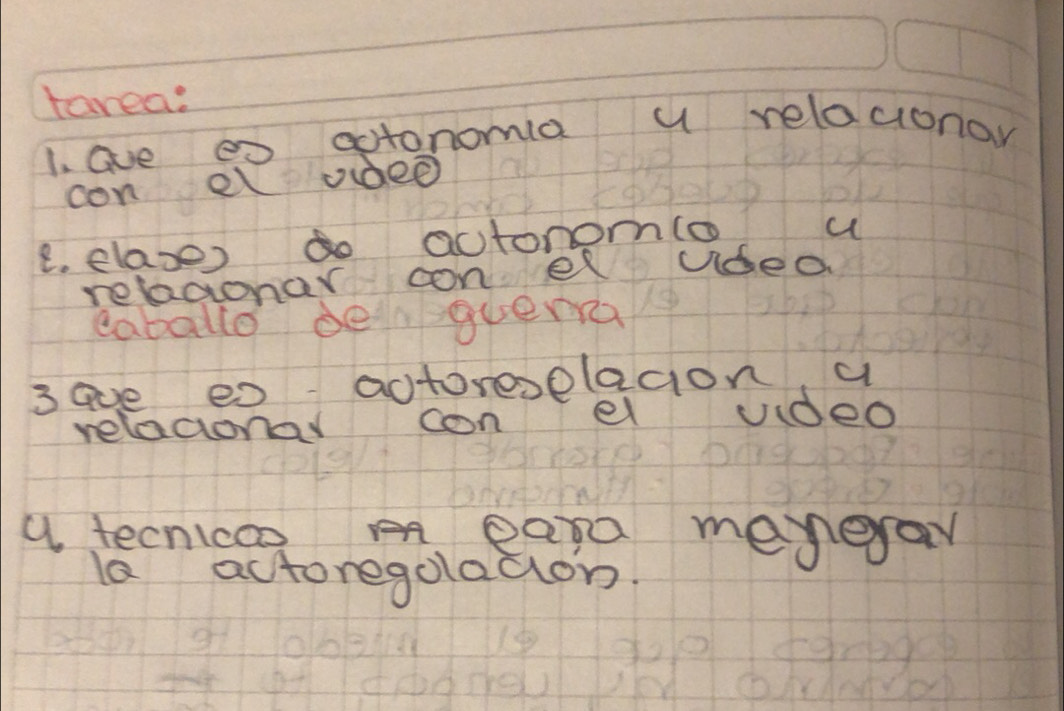 tarea:
1. Que es actonomia y relacionar
con el video
2. clases de autonomia y
relacionar con el video
caballo de guerra
3 Que es autoreselacion y
relacionar con el video
4 tecnicas para mayegar
la actoregulación.